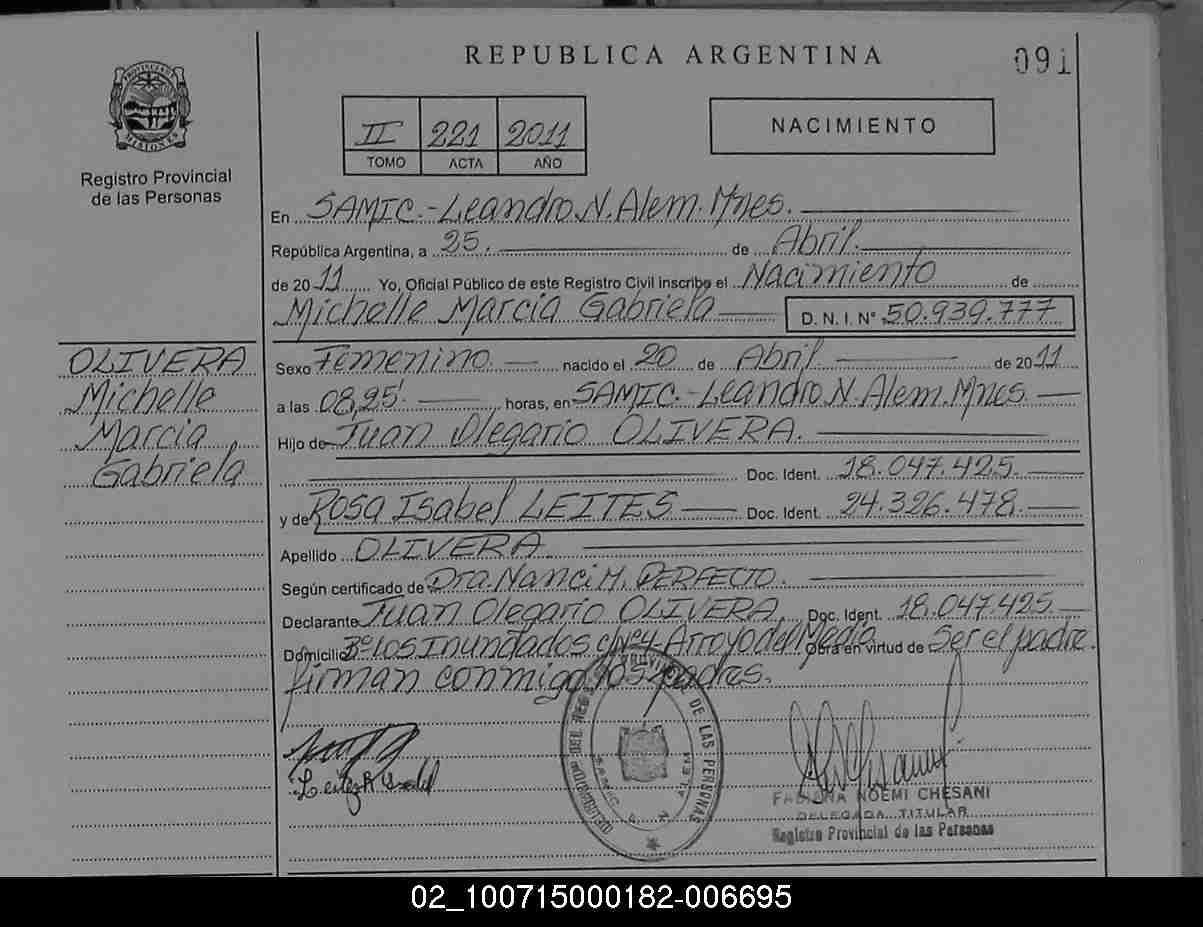 REPUBLICA ARGENTINA
091
PROVINCIA DE MISIONES
Registro Provincial
de las Personas
II 221 2011
TOMO ACTA AÑO
NACIMIENTO
En SAMIC.-Leandro.N.Alem.Mnes.
República Argentina, a 25. de Abril.
de 2011 Yo, Oficial Público de este Registro Civil inscribo el Nacimiento de
Michelle Marcia Gabriela D. N. I. N° 50.939.777
OLIVERA
Michelle
Marcia
Gabriela
Sexo Femenino nacido el 20 de Abril. de 2011
a las 08,25' horas, en SAMIC.-Leandro.N.Alem.Mnes.
Hijo de Juan Olegario OLIVERA.
Doc. Ident. 18.047.425.
y de Rosa Isabel LEITES Doc. Ident. 24.326.478.
Apellido OLIVERA
Según certificado de Dra.Nanci M. PERFECTO.
Declarante Juan Olegario OLIVERA Doc. Ident. 18.047.425.
Domicilio B° Los Inundados c/N°4 Arroyo del Medio Obra en virtud de Ser el padre.
firman conmigo los padres.
FABIANA NOEMI CHESANI
DELEGADA TITULAR
Registro Provincial de las Personas
02_100715000182-006695